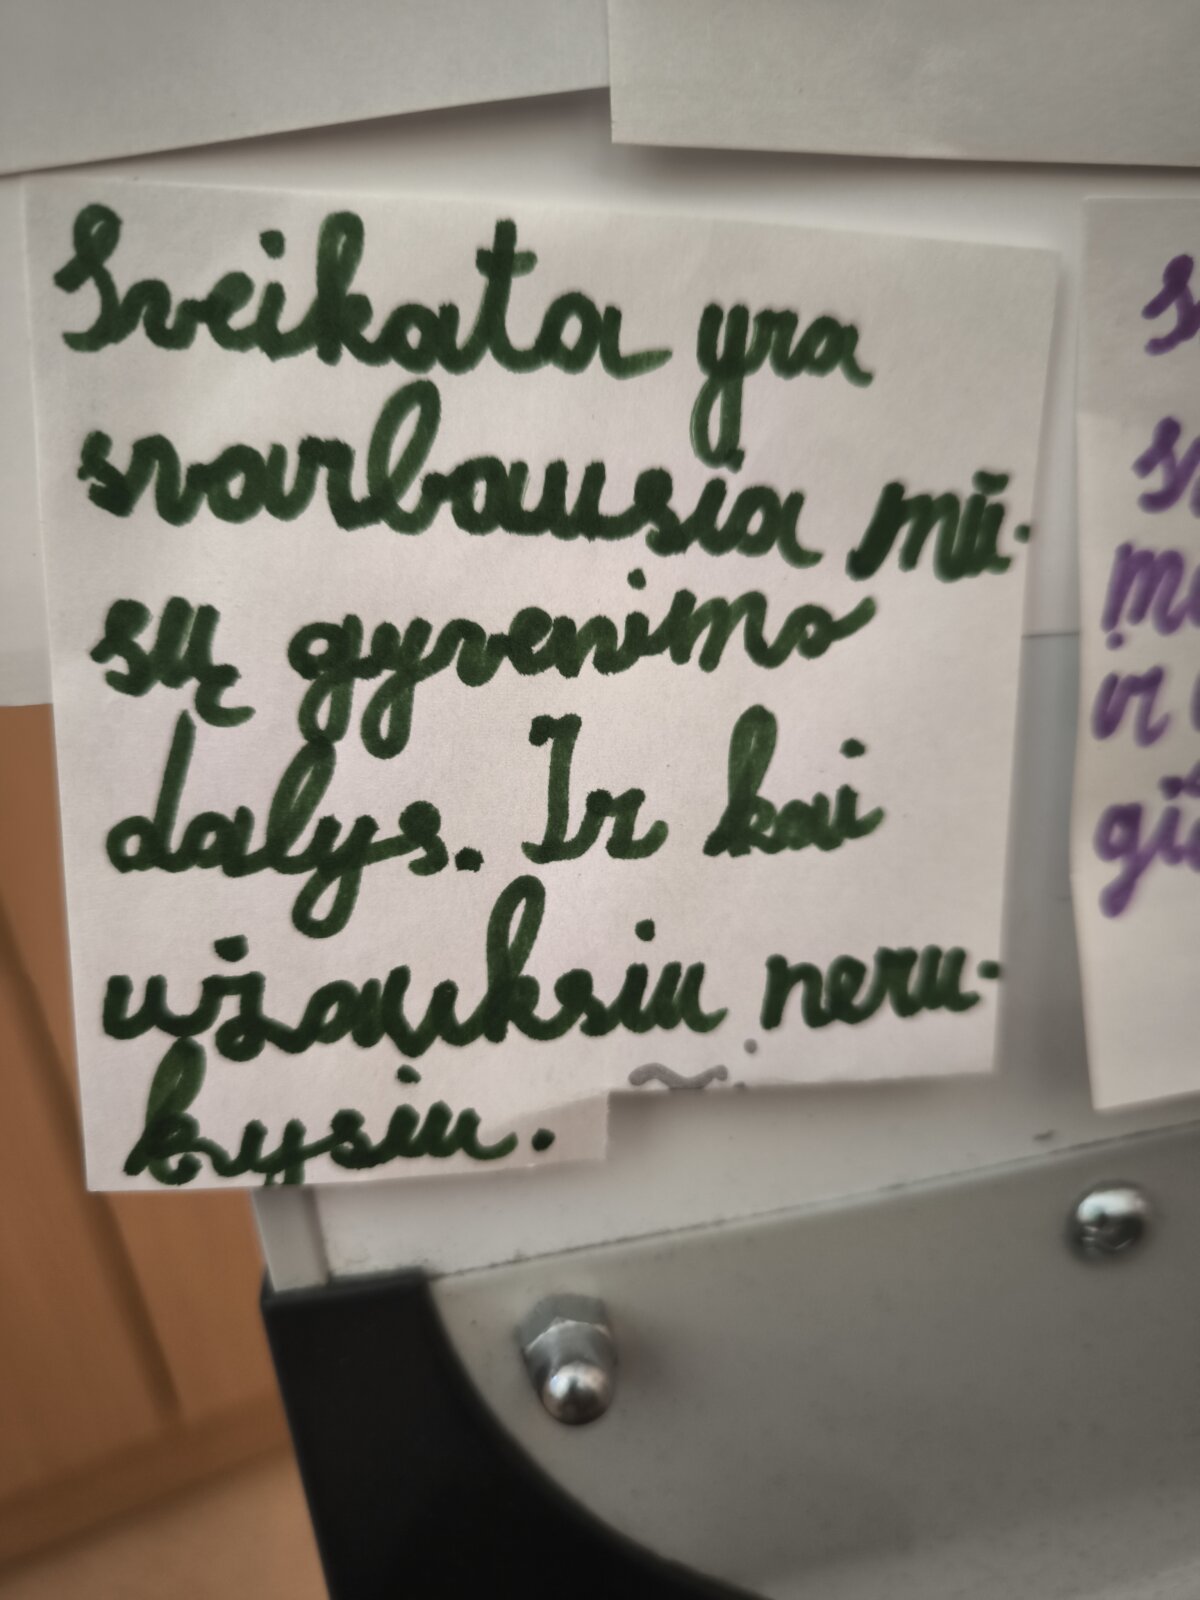 Sveikata yra
svarbausia mū-
sų gyvenimo
dalys. Ir kai
užauksiu neru-
kysiu.
ir